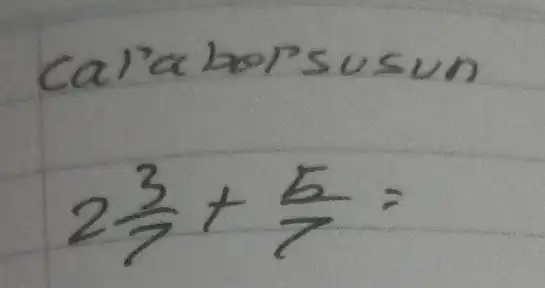 cara borsusun
2 3/7 + 5/7 =